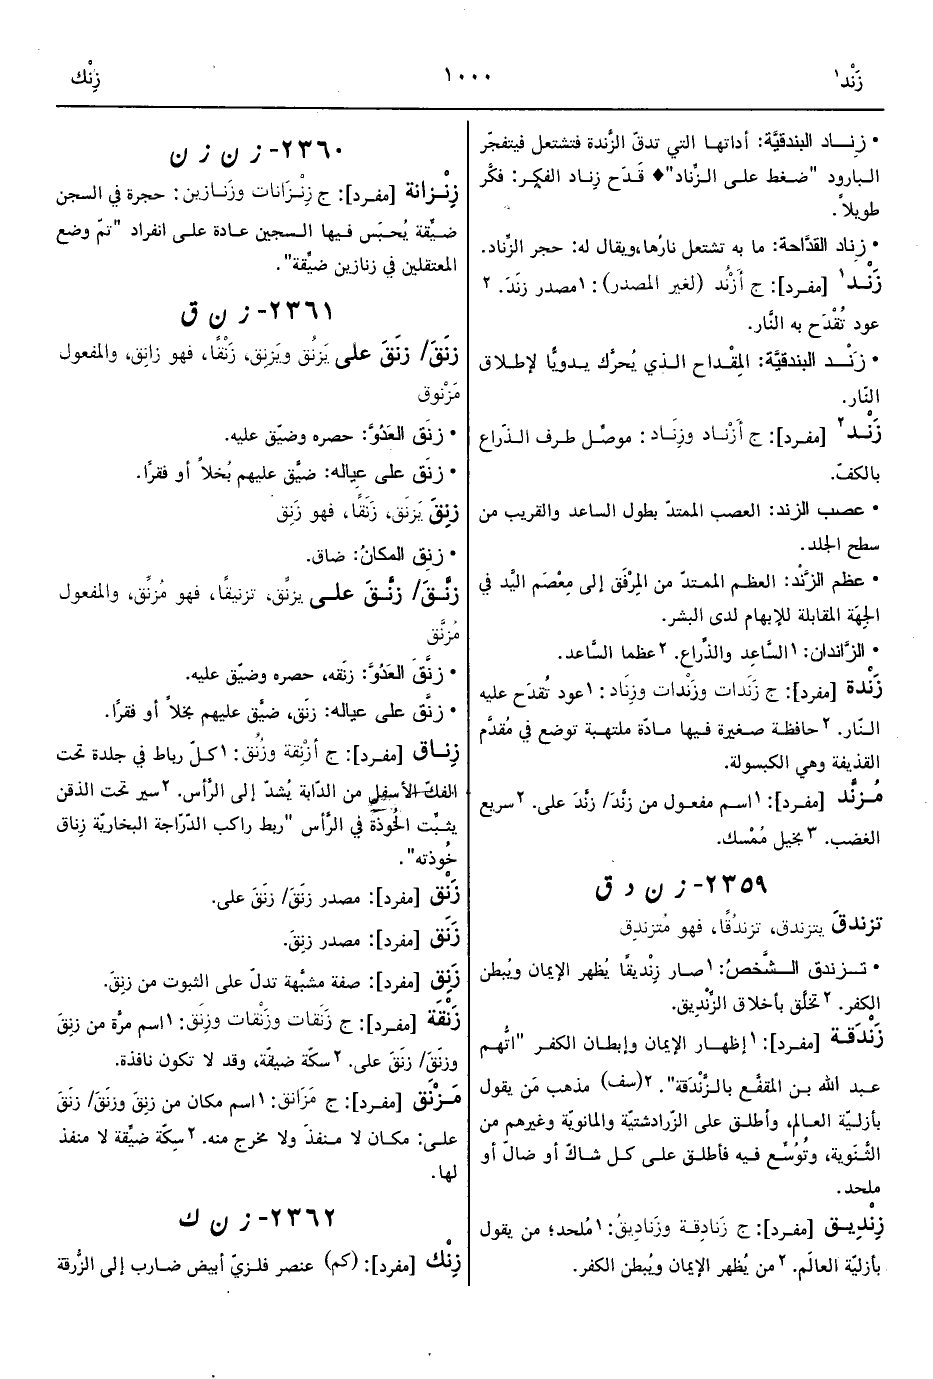 زَنْد١
١٠٠٠
زِنْك
• زِناد البندقيَّة: أداتها التي تدقّ الزَّندة فتشتعل فيتفجّر
البارود "ضغط على الزِّناد"♦ قَدَح زِناد الفكِر: فكَّر
طويلاً.
• زِناد القدَّاحة: ما به تشتعل نارُها،ويقال له: حجر الزِّناد.
زَنْد١ [مفرد]: ج أَزْنُد (لغير المصدر): ١مصدر زنَدَ. ٢
عود تُقْدَح به النَّار.
• زَنْد البندقيَّة: المِقْداح الذي يُحرَّك يدويًّا لإطلاق
النّار.
زَنْد٢ [مفرد]: ج أَزْناد وزِناد: موصِّل طرف الذّراع
بالكفّ.
• عصب الزند: العصب الممتدّ بطول الساعد والقريب من
سطح الجلد.
• عظم الزَّنْد: العظم الممتدّ من المِرْفَق إلى مِعْصَم اليَد في
الجِهَة المقابلة للإبهام لدى البشر.
• الزَّاندان: ١السَّاعد والذِّراع. ٢عظما السَّاعد.
زَنْدة [مفرد]: ج زَنَدات وزَنْدات وزِناد: ١عود تُقدَح عليه
النّار. ٢حافظة صغيرة فيها مادّة ملتهبة توضع في مُقدَّم
القذيفة وهي الكبسولة.
مُزنَّد [مفرد]: ١اسم مفعول من زنَّدَ/ زنَّدَ على. ٢سريع
الغضب. ٣بخيل مُمْسك.
٢٣٥٩- ز ن د ق
تزندقَ يتزندق، تزندُقًا، فهو مُتزندِق
• تزندق الشَّخصُ: ١صار زِنْديقًا يُظهر الإيمان ويُبطن
الكفر. ٢تخلَّق بأخلاق الزِّنْديق.
زَنْدَقة [مفرد]: ١إظهار الإيمان وإبطان الكفر "اتُّهم
عبد الله بن المقفَّع بالزَّنْدَقة". ٢(سف) مذهب مَن يقول
بأزليَّة العالم، وأطلق على الزّرادشتيَّة والمانويَّة وغيرهم من
الثَّنوية، وتُوُسِّع فيه فأطلق على كل شاكّ أو ضالّ أو
ملحد.
زِنْديق [مفرد]: ج زَنادِقة وزَناديقُ: ١مُلحد؛ من يقول
بأزليَّة العالَم. ٢من يُظهر الإيمان ويُبطن الكفر.
٢٣٦٠- ز ن ز ن
زِنْزانة [مفرد]: ج زِنْزَانات وزَنازين: حجرة في السجن
ضيِّقة يُحبَس فيها السجين عادة على انفراد "تمّ وضع
المعتقلين في زنازين ضيِّقة".
٢٣٦١- ز ن ق
زنَقَ/ زنَقَ على يَزنُق ويَزنِق، زَنْقًا، فهو زانِق، والمفعول
مَزْنوق
• زنَق العَدُوَّ: حصره وضيّق عليه.
• زنَق على عياله: ضيَّق عليهم بُخلاً أو فقرًا.
زنِقَ يَزنَق، زَنَقًا، فهو زَنِق
• زنِق المكانُ: ضاق.
زنَّقَ/ زنَّقَ على يزنِّق، تزنيقًا، فهو مُزنِّق، والمفعول
مُزنَّق
• زنَّق العَدُوَّ: زنَقه، حصره وضيّق عليه.
• زنَّق على عياله: زنَق، ضيَّق عليهم بخلاً أو فقرًا.
زِناق [مفرد]: ج أزْنِقة وزُنُق: ١كلّ رباط في جلدة تحت
الفكّ الأسفل من الدّابة يُشدّ إلى الرَّأس. ٢سير تحت الذقن
يثبِّت الخُوذة في الرَّأس "ربط راكب الدّرّاجة البخاريّة زِناق
خُوذته".
زَنْق [مفرد]: مصدر زنَقَ/ زنَقَ على.
زَنَق [مفرد]: مصدر زنِقَ.
زَنِق [مفرد]: صفة مشبَّهة تدلّ على الثبوت من زنِقَ.
زَنْقَة [مفرد]: ج زَنَقات وزَنْقات وزِنَق: ١اسم مرَّة من زنِقَ
وزنَقَ/ زنَقَ على. ٢سكّة ضيقة، وقد لا تكون نافذة.
مَزْنَق [مفرد]: ج مَزَانق: ١اسم مكان من زنِقَ وزنَقَ/ زنَقَ
على: مكان لا منفذَ ولا مخرج منه. ٢سكّة ضيِّقة لا منفذ
لها.
٢٣٦٢- ز ن ك
زِنْك [مفرد]: (كم) عنصر فلزيّ أبيض ضارب إلى الزُّرقة